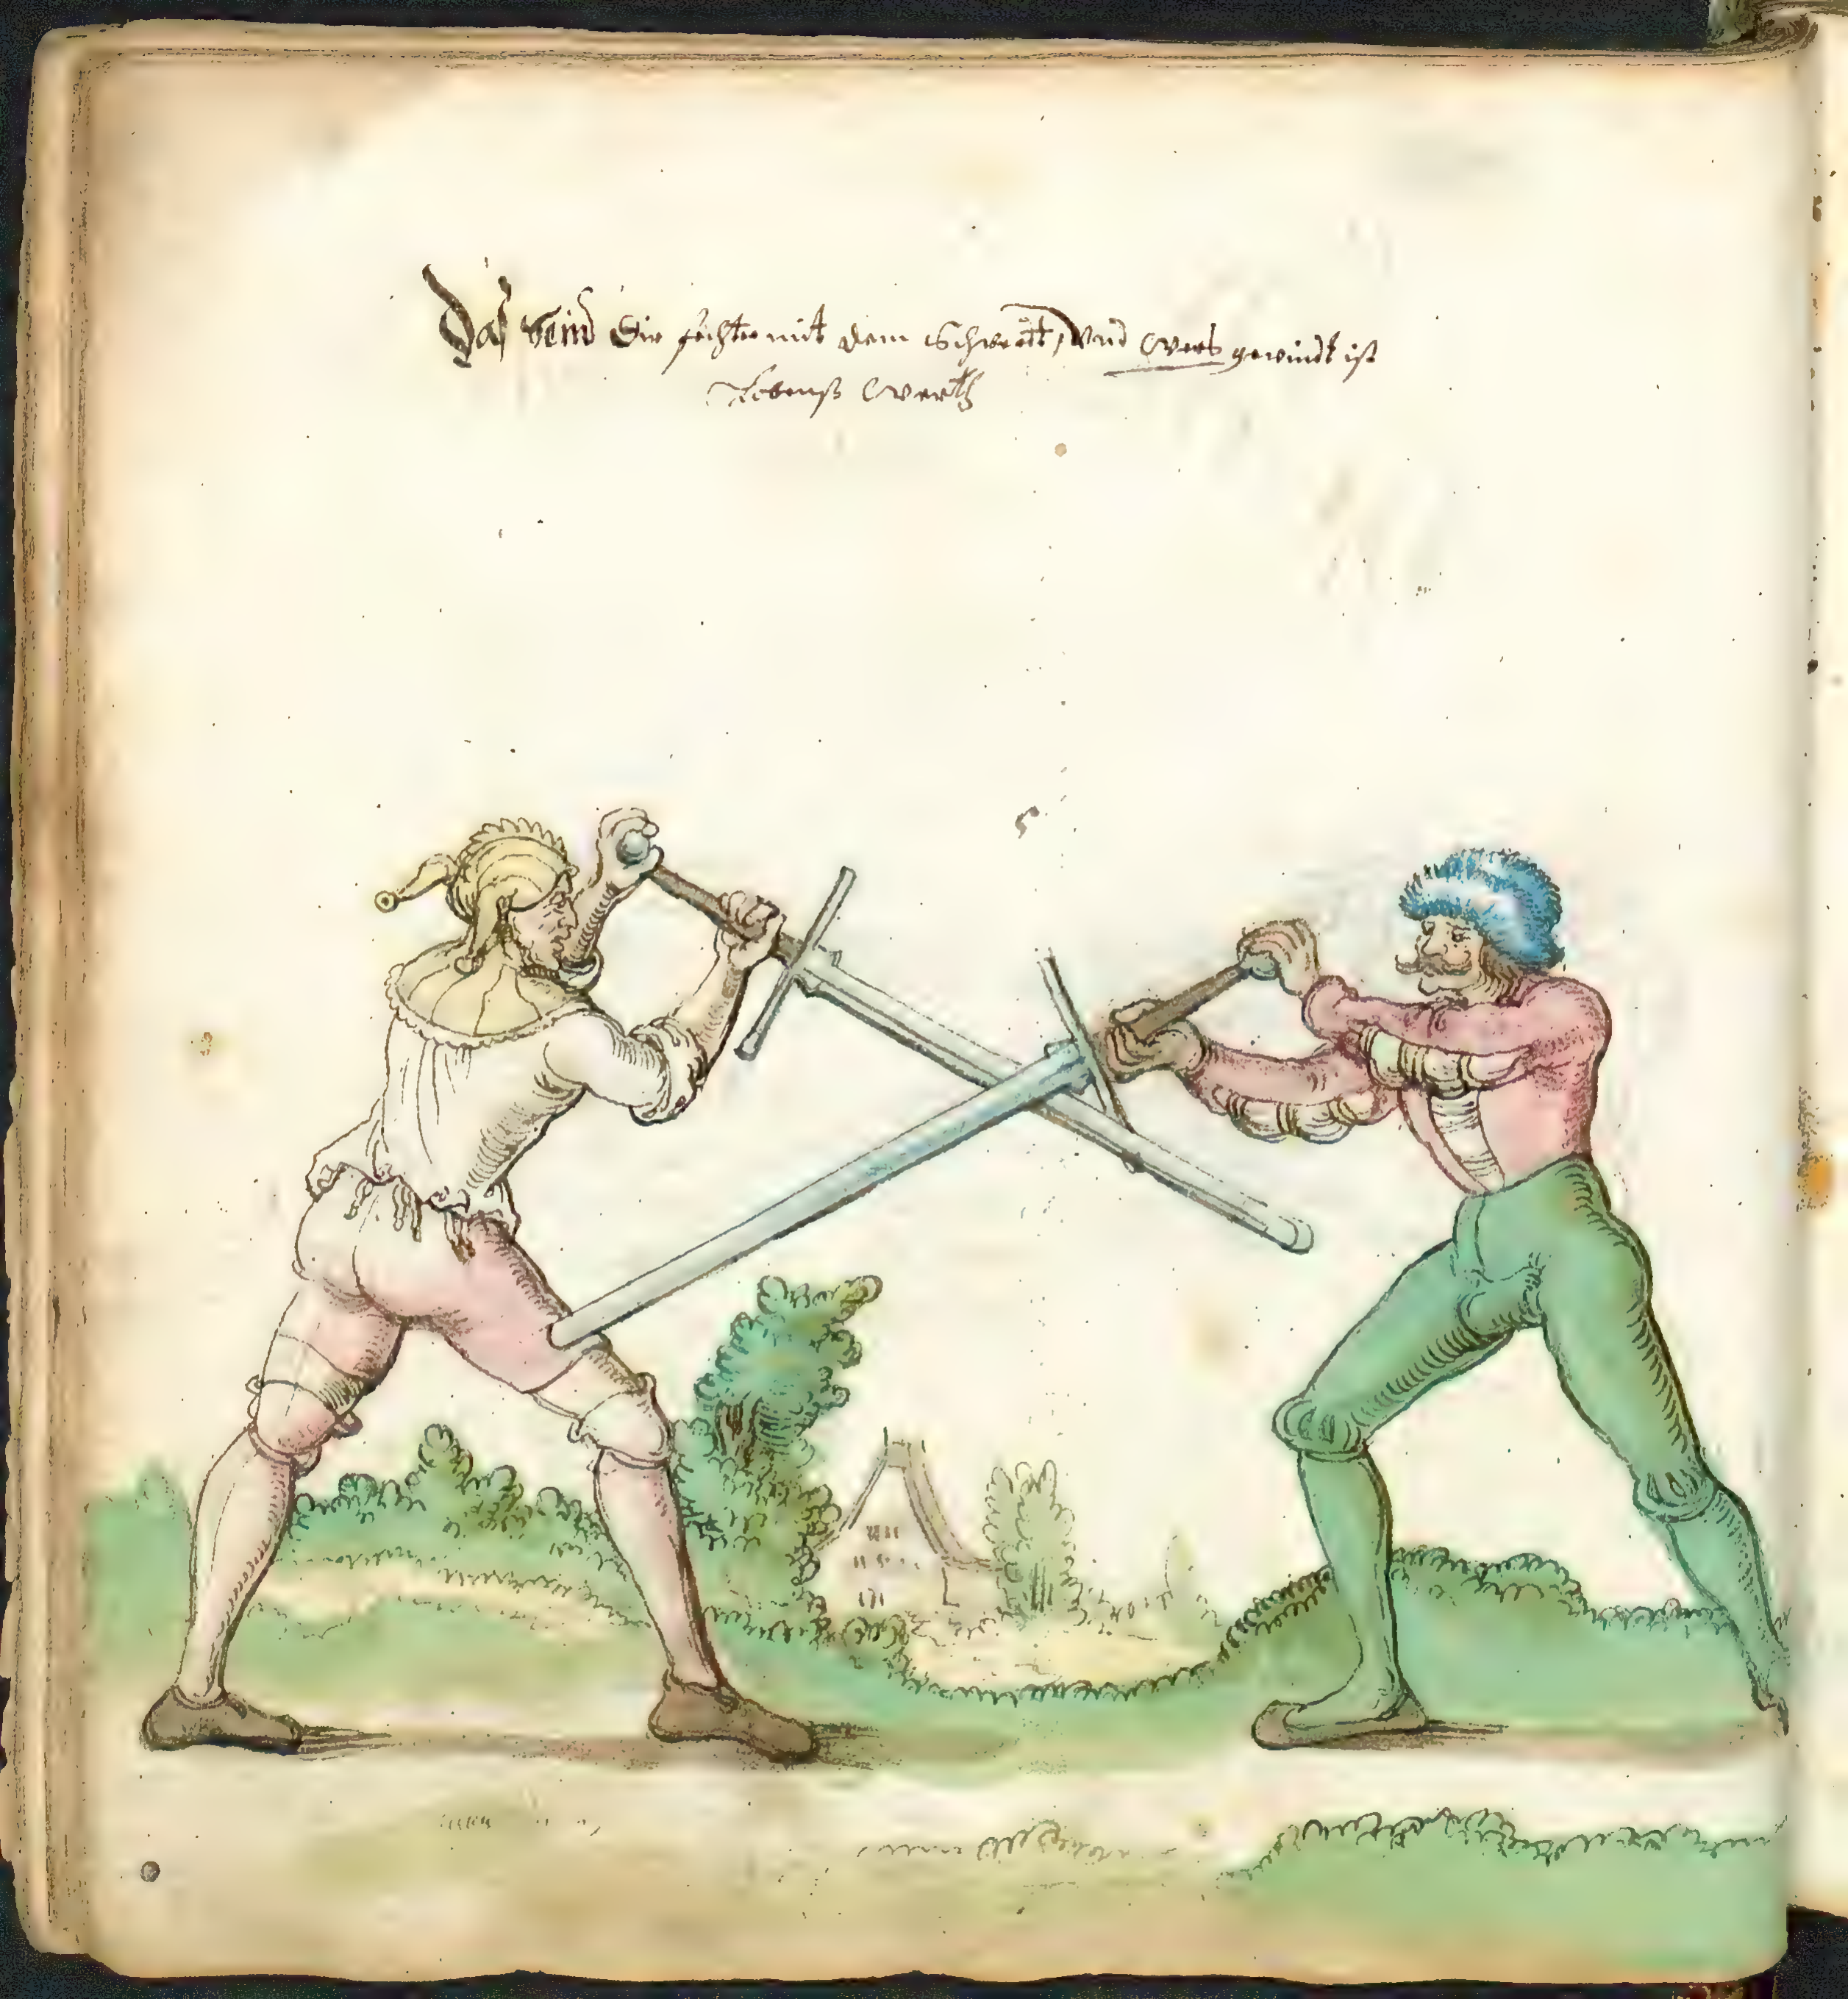 Das seind Die fechter mit dem Schwertt, Vnd Wers gewindt ist
Lobenß Werth
5